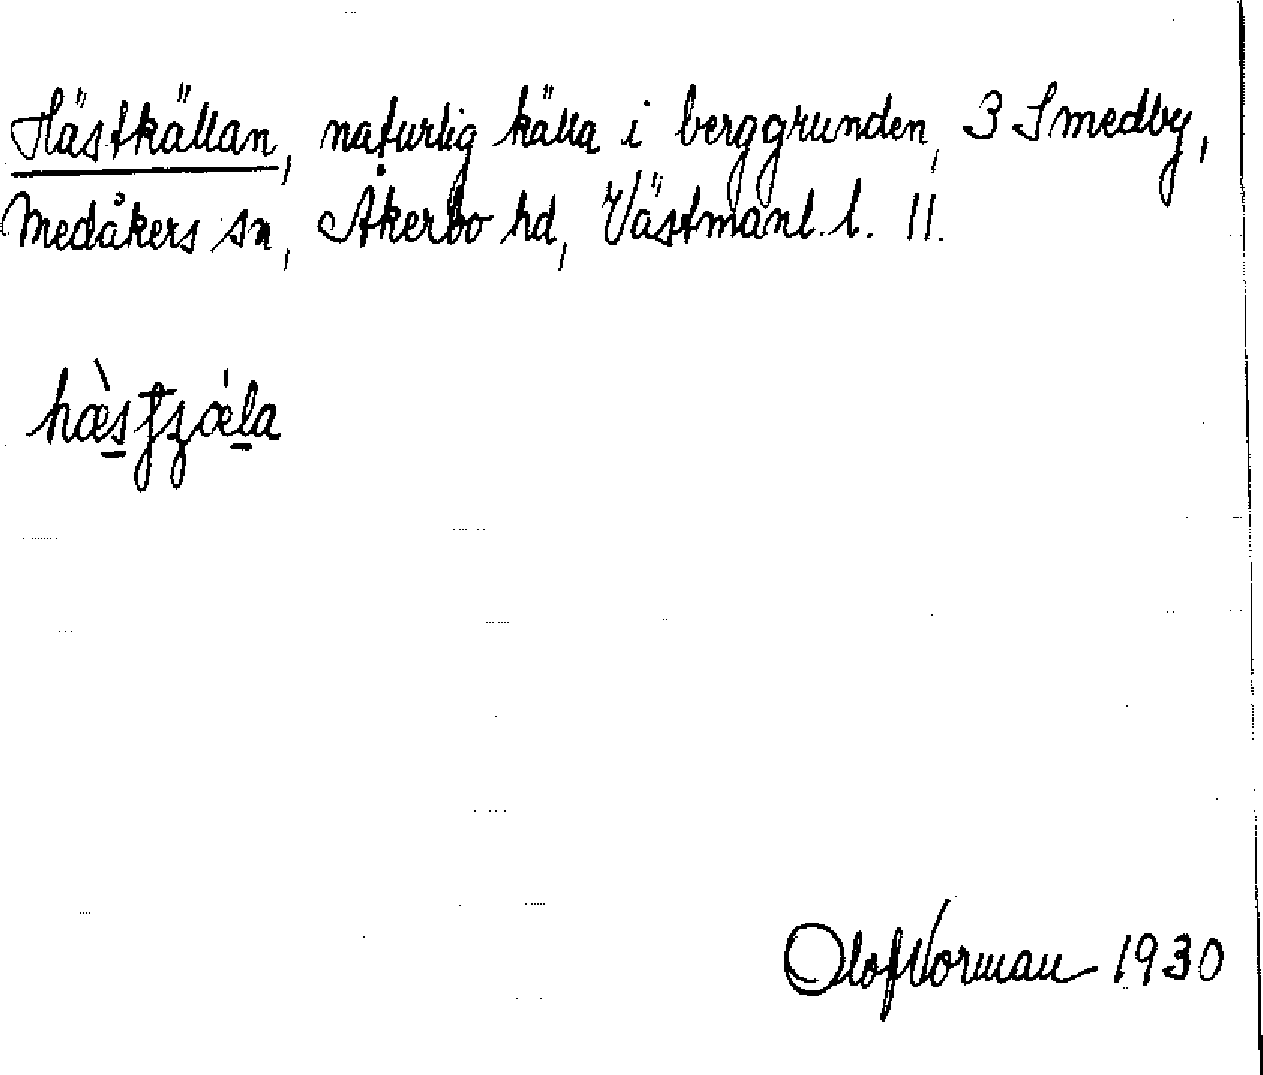 Hästkällan, naturlig källa i berggrunden, 3 Smedby,
Medåkers sn, Åkerbo hd, Västmanl. l. 11.
Olof Norman 1930